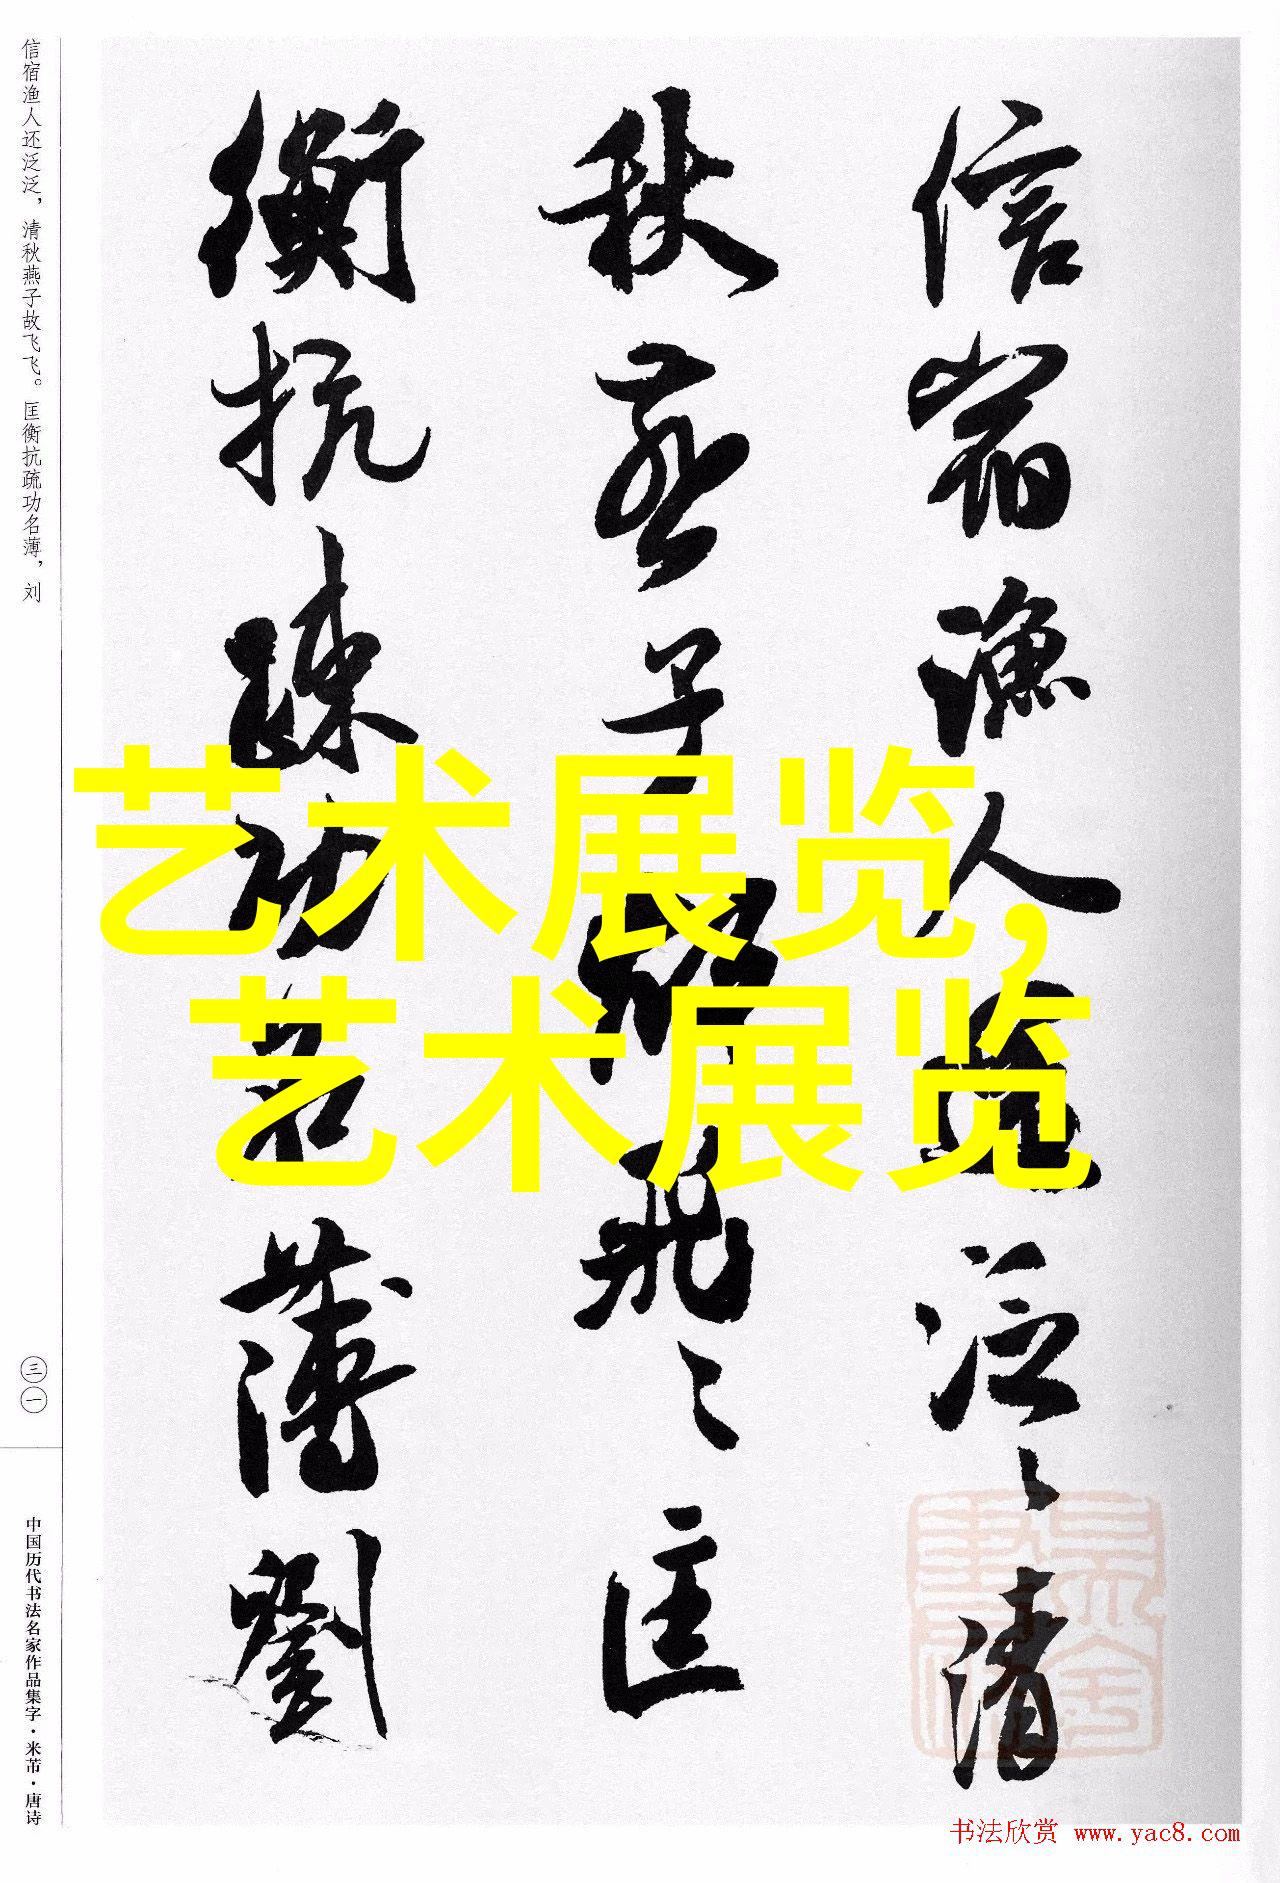 信宿漁人還泛泛清
秋燕子故飛飛匡
衡抗疏功名薄劉
信宿渔人还泛泛，清秋燕子故飞飞。匡衡抗疏功名薄，刘
三一
中国历代书法名家作品集字·米芾·唐诗
艺术展览，
艺术展览
书法欣赏 www.yac8.com